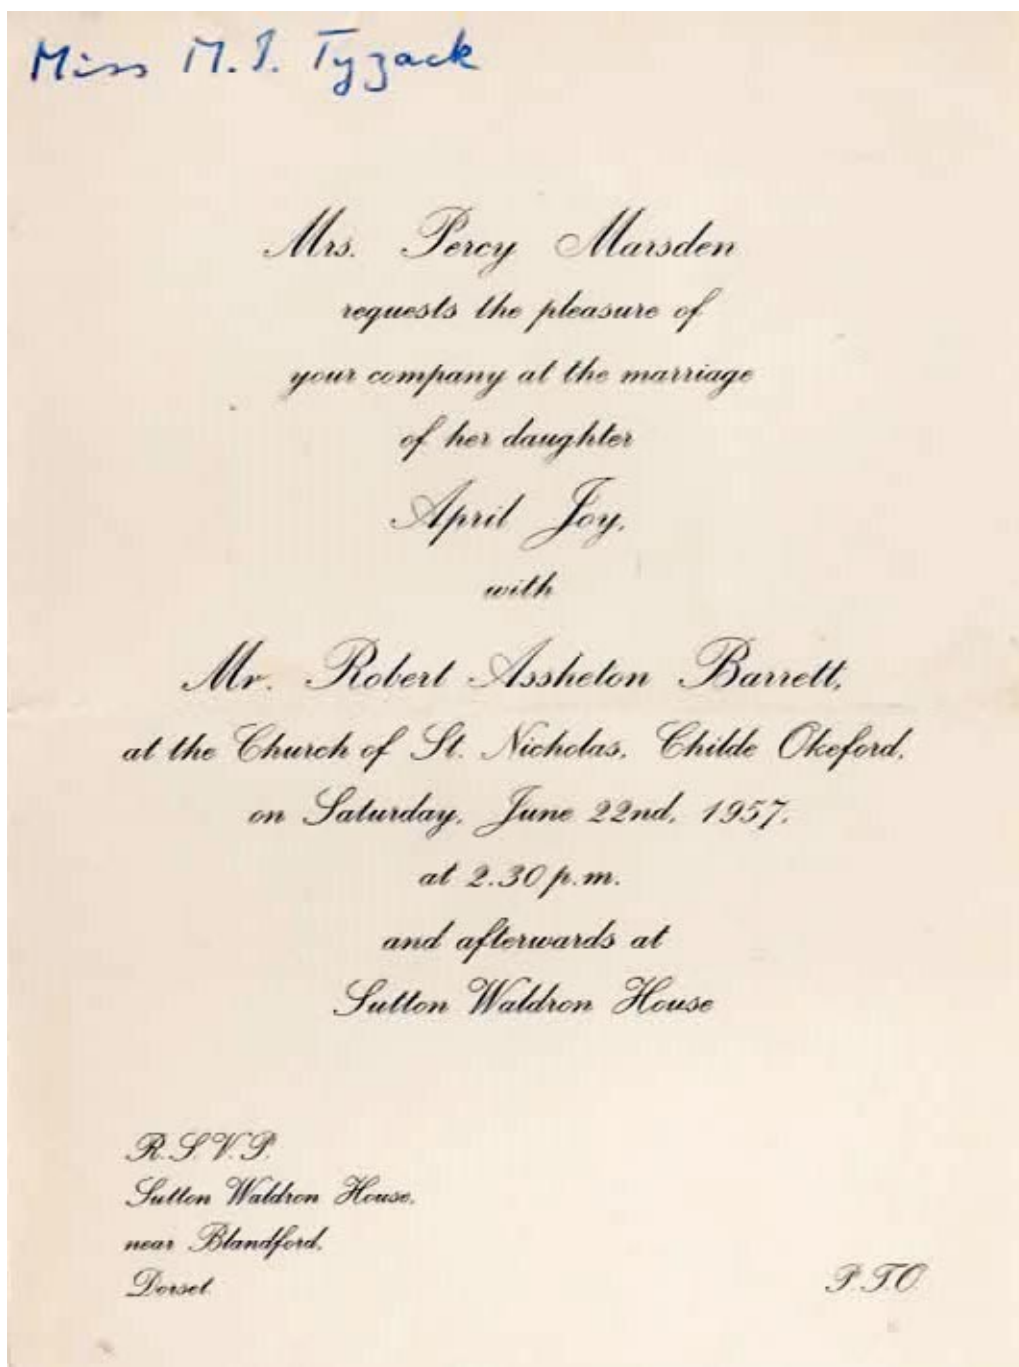 Miss M. J. Tyzack
Mrs. Percy Marsden
requests the pleasure of
your company at the marriage
of her daughter
April Joy,
with
Mr. Robert Assheton Barrett,
at the Church of St. Nicholas, Childe Okeford,
on Saturday, June 22nd, 1957,
at 2.30 p.m.
and afterwards at
Sutton Waldron House
R.S.V.P.
Sutton Waldron House,
near Blandford,
Dorset.
P.T.O.